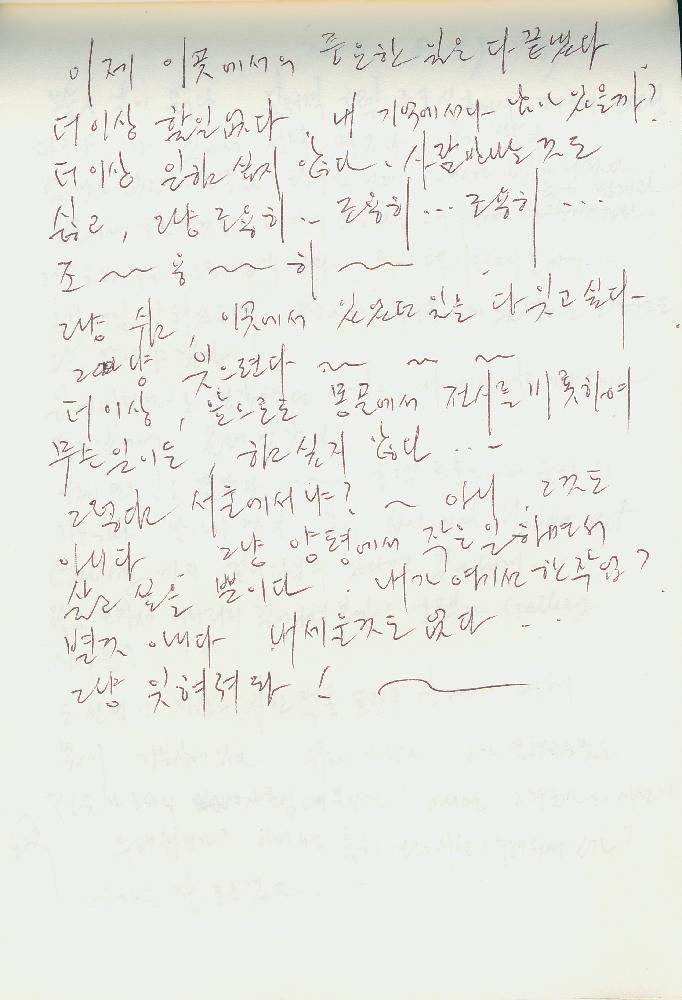 이제 이곳에서의 중요한 일은 다 끝냈다
더이상 할일 없다, 내 기억에서나 남아 있을까?
더이상 일하고 싶지 않다. 사람만나는 것도
싫고, 그냥 조용히 .. 조용히 ... 조용히 ...
조 ~ 용 ~ 히 ~
그냥 쉬고, 이곳에서 있었던 일을 다 잊고 싶다
그냥 잊으련다 ~ ~ ~
더 이상, 앞으로도 몽골에서 전시를 비롯하여
무슨일이든, 하고 싶지 않다 ...
그렇다고 서울에서냐? ~ 아니, 그것도
아니다 그냥 양평에서 작은일 하면서
살고 싶을 뿐이다 내가 여기서 한 작업?
별것 아니다 내세울것도 없다 ...
그냥 잊혀져라 ! ~